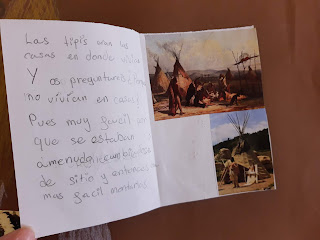 Las tipis eran las
casas en donde
Y os preguntareis
no vivían en casas
Pues muy facil
que se estaban
amenudo
de sitio y entonces
mas facil montarlas